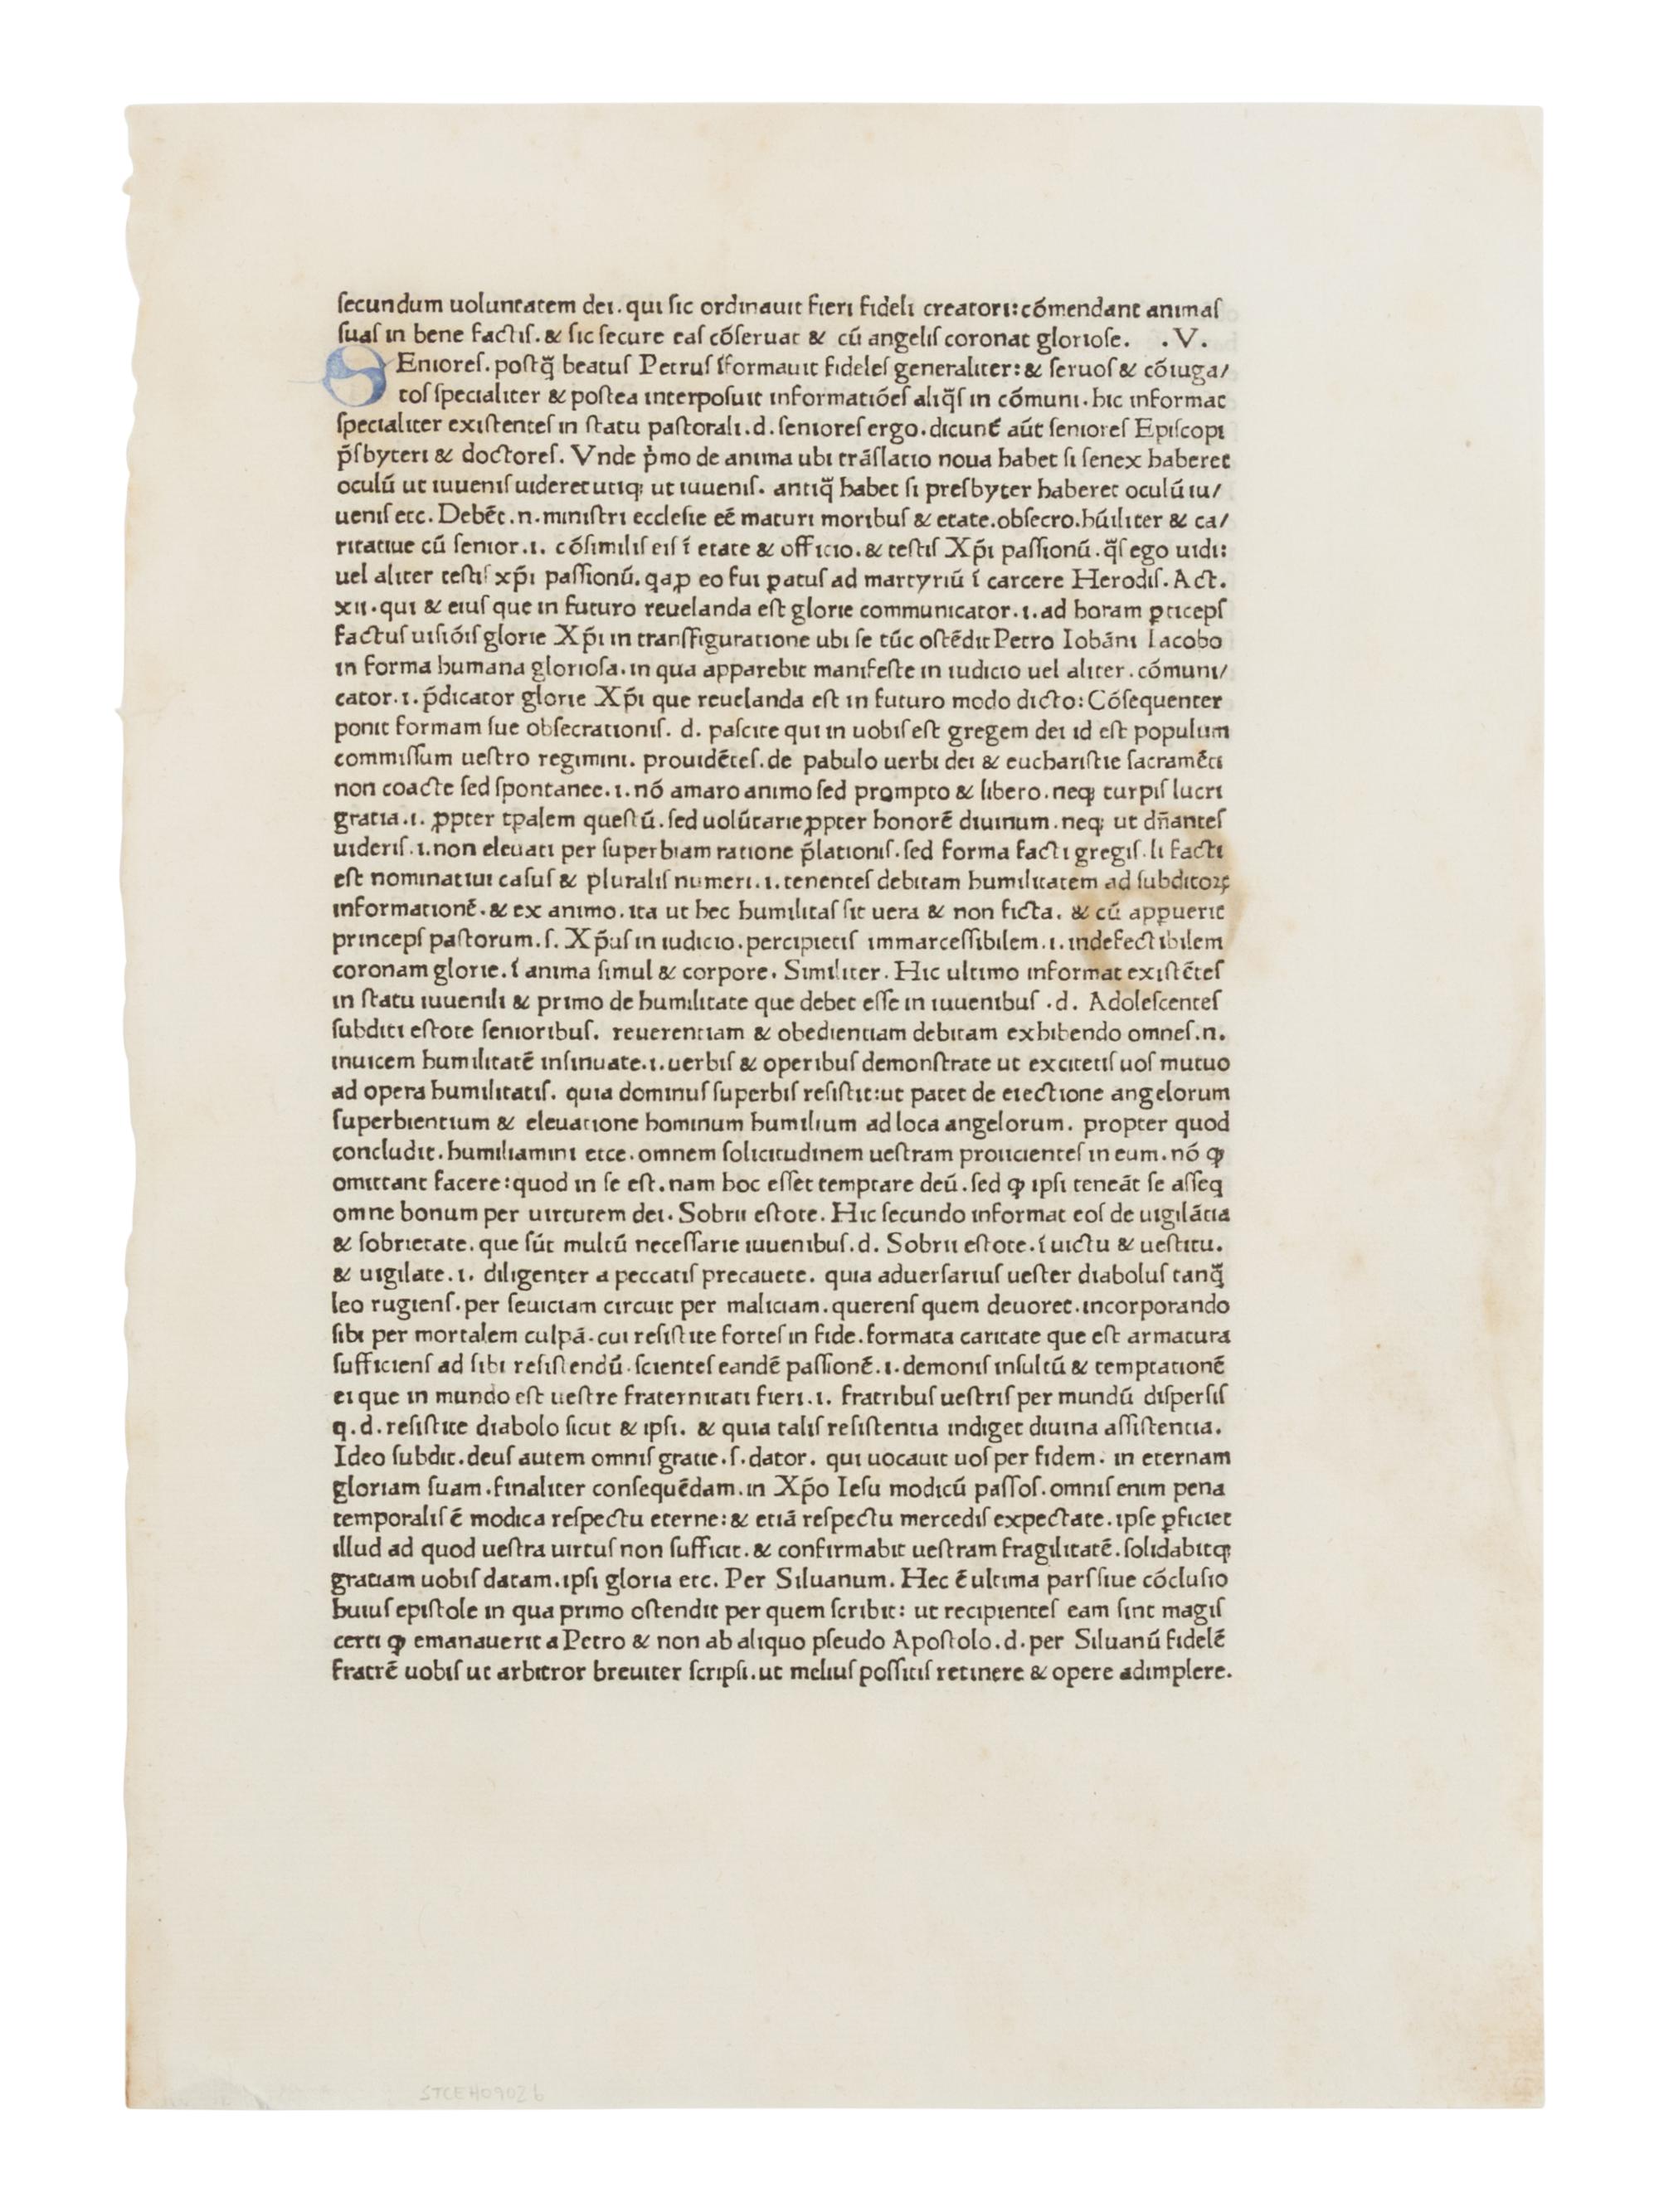 ſecundum uoluntatem dei. qui ſic ordinauit fieri fideli creatori: cōmendant animaſ
ſuaſ in bene factiſ. & ſic ſecure eaſ cōſeruat & cū angeliſ coronat glorioſe. .V.
SEnioreſ. poſtq̄ beatuſ Petruſ īformauit fideleſ generaliter: & ſeruoſ & cōiuga/
toſ ſpecialiter & poſtea interpoſuit informatiōeſ aliq̄ſ in cōmuni. hic informat
ſpecialiter exiſtenteſ in ſtatu paſtorali. d. ſenioreſ ergo. dicunt̄ aūt ſenioreſ Epiſcopi
p̄ſbyteri & doctoreſ. Vnde p̓mo de anima ubi trāſlatio noua habet ſi ſenex haberet
oculū ut iuueniſ uideret utiq; ut iuueniſ. antiq̄ habet ſi preſbyter haberet oculū iu/
ueniſ etc. Debēt .n. miniſtri eccleſie eē maturi moribuſ & etate. obſecro. hūiliter & ca/
ritatiue cū ſenior .i. cōſimiliſ eiſ ī etate & officio. & teſtiſ Xp̄i paſſionū. q̄ſ ego uidi:
uel aliter teſtiſ xp̄i paſſionū. qa ꝓ eo fui ꝑatuſ ad martyriū ī carcere Herodiſ. Act.
xii. qui & eiuſ que in futuro reuelanda eſt glorie communicator .i. ad horam ꝑticepſ
factuſ uiſiōiſ glorie Xp̄i in tranſfiguratione ubi ſe tūc oſtēdit Petro Iohāni Iacobo
in forma humana glorioſa. in qua apparebit manifeſte in iudicio uel aliter. cōmuni/
cator .i. p̄dicator glorie Xp̄i que reuelanda eſt in futuro modo dicto: Cōſequenter
ponit formam ſue obſecrationiſ. d. paſcite qui in uobiſ eſt gregem dei id eſt populum
commiſſum ueſtro regimini. prouidēteſ. de pabulo uerbi dei & euchariſtie ſacramēti
non coacte ſed ſpontanee .i. nō amaro animo ſed prompto & libero. neq; turpiſ lucri
gratia .i. ꝓpter tꝑalem queſtū. ſed uolūtarie ꝓpter honorē diuinum. neq; ut dn̄anteſ
uideriſ .i. non eleuati per ſuperbiam ratione p̄lationiſ. ſed forma facti gregiſ. li facti
eſt nominatiui caſuſ & pluraliſ numeri .i. tenenteſ debitam humilitatem ad ſubditoꝝ
informationē. & ex animo. ita ut hec humilitaſ ſit uera & non ficta. & cū apꝑuerit
princepſ paſtorum .ſ. Xp̄uſ in iudicio. percipietiſ immarceſſibilem .i. indefectibilem
coronam glorie. ī anima ſimul & corpore. Similiter. Hic ultimo informat exiſtēteſ
in ſtatu iuuenili & primo de humilitate que debet eſſe in iuuenibuſ .d. Adoleſcenteſ
ſubditi eſtote ſenioribuſ. reuerentiam & obedientiam debitam exhibendo omneſ .n.
inuicem humilitatē inſinuate .i. uerbiſ & operibuſ demonſtrate ut excitetiſ uoſ mutuo
ad opera humilitatiſ. quia dominuſ ſuperbiſ reſiſtit: ut patet de eiectione angelorum
ſuperbientium & eleuatione hominum humilium ad loca angelorum. propter quod
concludit. humiliamini etce. omnem ſolicitudinem ueſtram proiicienteſ in eum. nō ꝙ
omittant facere: quod in ſe eſt. nam hoc eſſet temptare deū. ſed ꝙ ipſi teneāt ſe aſſeq
omne bonum per uirtutem dei. Sobrii eſtote. Hic ſecundo informat eoſ de uigilātia
& ſobrietate. que ſūt multū neceſſarie iuuenibuſ. d. Sobrii eſtote. ī uictu & ueſtitu.
& uigilate .i. diligenter a peccatiſ precauete. quia aduerſariuſ ueſter diaboluſ tanq̄
leo rugienſ. per ſeuiciam circuit per maliciam. querenſ quem deuoret. incorporando
ſibi per mortalem culpā. cui reſiſtite forteſ in fide. formata caritate que eſt armatura
ſufficienſ ad ſibi reſiſtendū. ſcienteſ eandē paſſionē .i. demoniſ inſultū & temptationē
ei que in mundo eſt ueſtre fraternitati fieri .i. fratribuſ ueſtriſ per mundū diſperſiſ
q. d. reſiſtite diabolo ſicut & ipſi. & quia taliſ reſiſtentia indiget diuina aſſiſtentia.
Ideo ſubdit. deuſ autem omniſ gratie .ſ. dator. qui uocauit uoſ per fidem. in eternam
gloriam ſuam. finaliter conſequēdam. in Xp̄o Ieſu modicū paſſoſ. omniſ enim pena
temporaliſ ē modica reſpectu eterne: & etiā reſpectu mercediſ expectate. ipſe ꝑficiet
illud ad quod ueſtra uirtuſ non ſufficit. & confirmabit ueſtram fragilitatē. ſolidabitq;
gratiam uobiſ datam. ipſi gloria etc. Per Siluanum. Hec ē ultima parſ ſiue cōcluſio
huiuſ epiſtole in qua primo oſtendit per quem ſcribit: ut recipienteſ eam ſint magiſ
certi ꝙ emanauerit a Petro & non ab aliquo pſeudo Apoſtolo. d. per Siluanū fidelē
fratrē uobiſ ut arbitror breuiter ſcripſi. ut meliuſ poſſitiſ retinere & opere adimplere.
STCEH09026